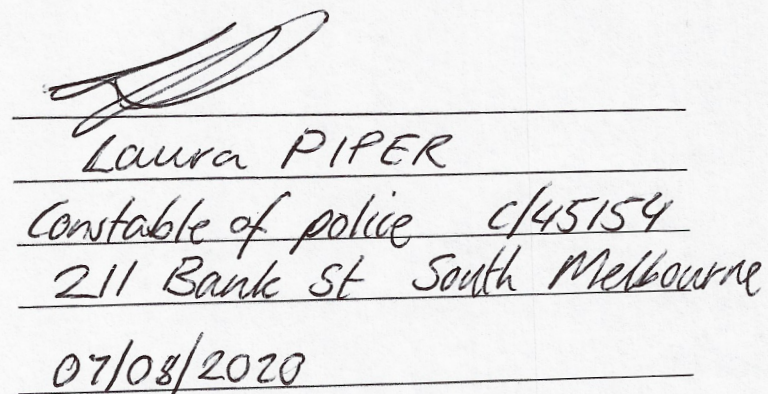 Laura PIPER
Constable of police c/45154
211 Bank St South Melbourne
07/08/2020